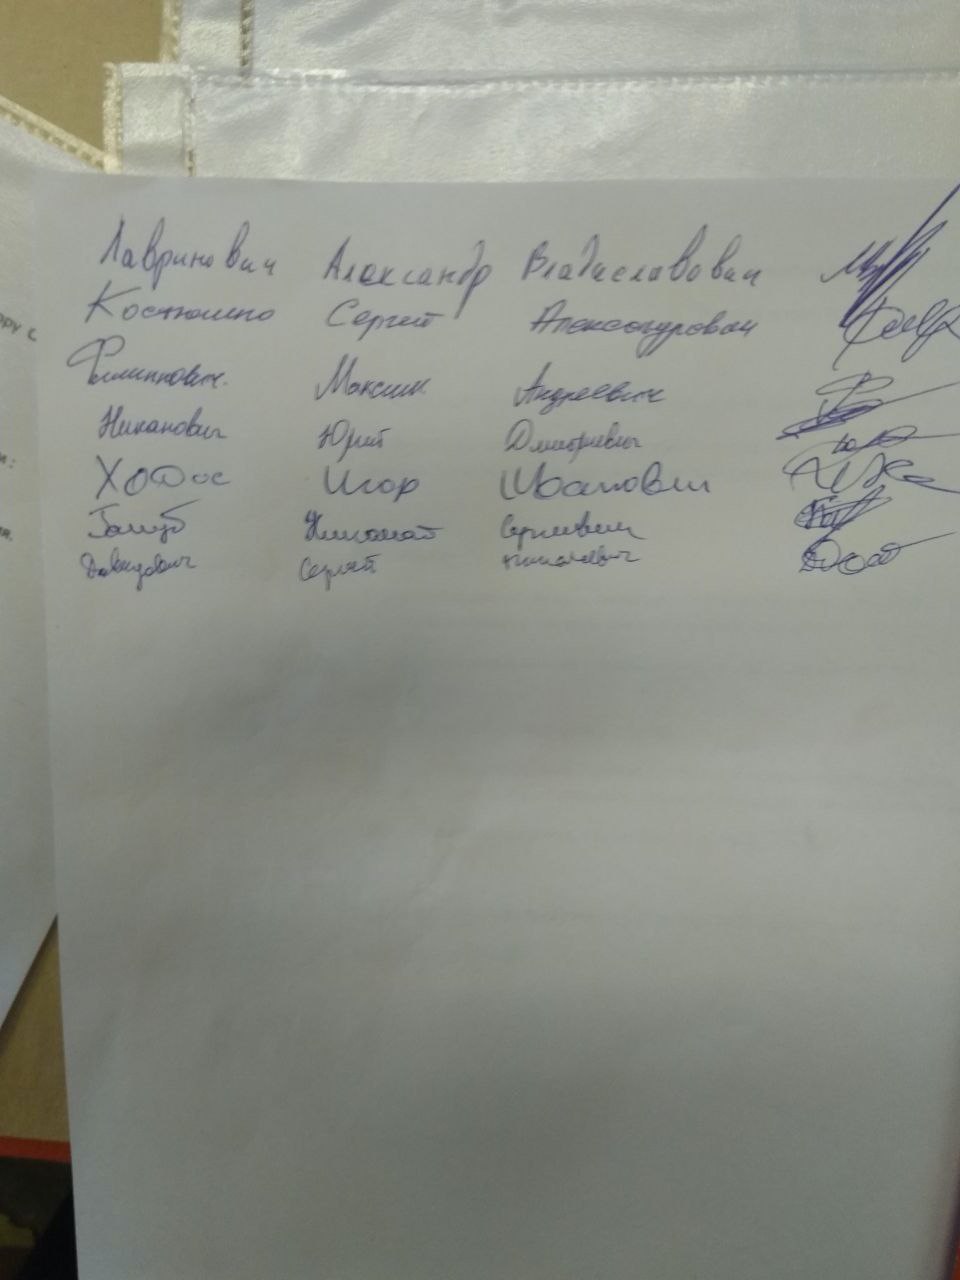 Лавринович Александр Владиславович
Костюшко Сергей Александрович
Филиппович Максим Андреевич
Никанович Юрий Дмитриевич
Ходос Игор Иванович
Голуб Николай Сергеевич
Давидович Сергей Николаевич